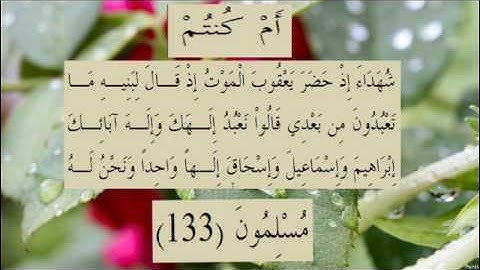 أَمْ كُنتُمْ
شُهَدَاءَ إِذْ حَضَرَ يَعْقُوبَ الْمَوْتُ إِذْ قَالَ لِبَنِيهِ مَا
تَعْبُدُونَ مِن بَعْدِي قَالُواْ نَعْبُدُ إِلَـهَكَ وَإِلَهَ آبَائِكَ
إِبْرَاهِيمَ وَإِسْمَاعِيلَ وَإِسْحَاقَ إِلَـهاً وَاحِداً وَنَحْنُ لَهُ
مُسْلِمُونَ (133)